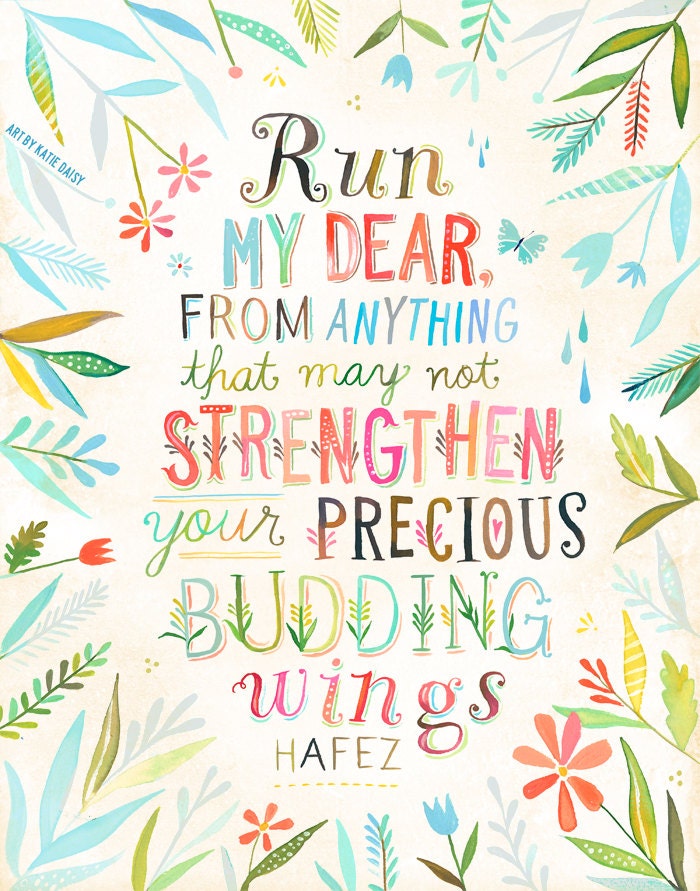 ART BY KATIE DAISY
Run
MY DEAR,
FROM ANYTHING
that may not
STRENGTHEN
your PRECIOUS
BUDDING
wings
HAFEZ